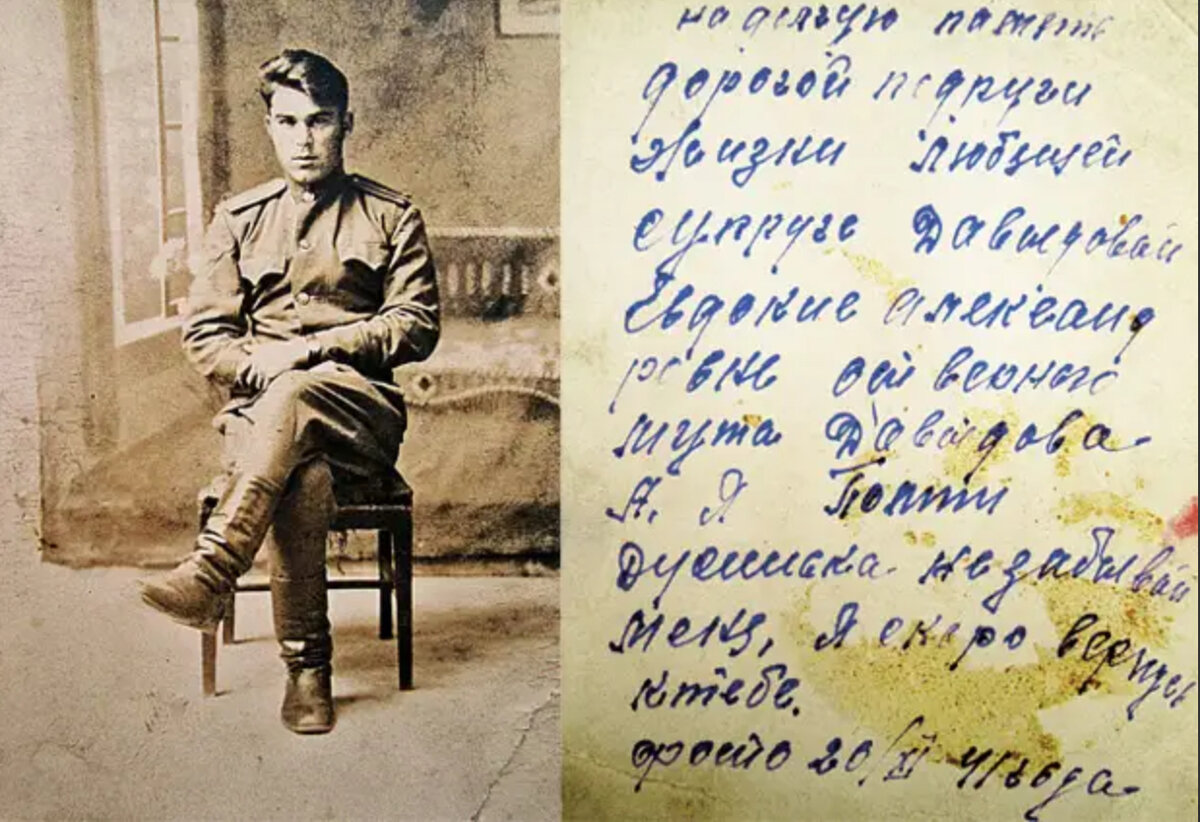 на долгую память
дорогой подруги
жизни любящей
супруге Давыдовай
Евдокие александ
ровне от верного
мужа Давыдова
А. Я Помни
Дусинька незабывай
меня, Я скоро вернусь
ктебе.
фото 20/XI 41 года